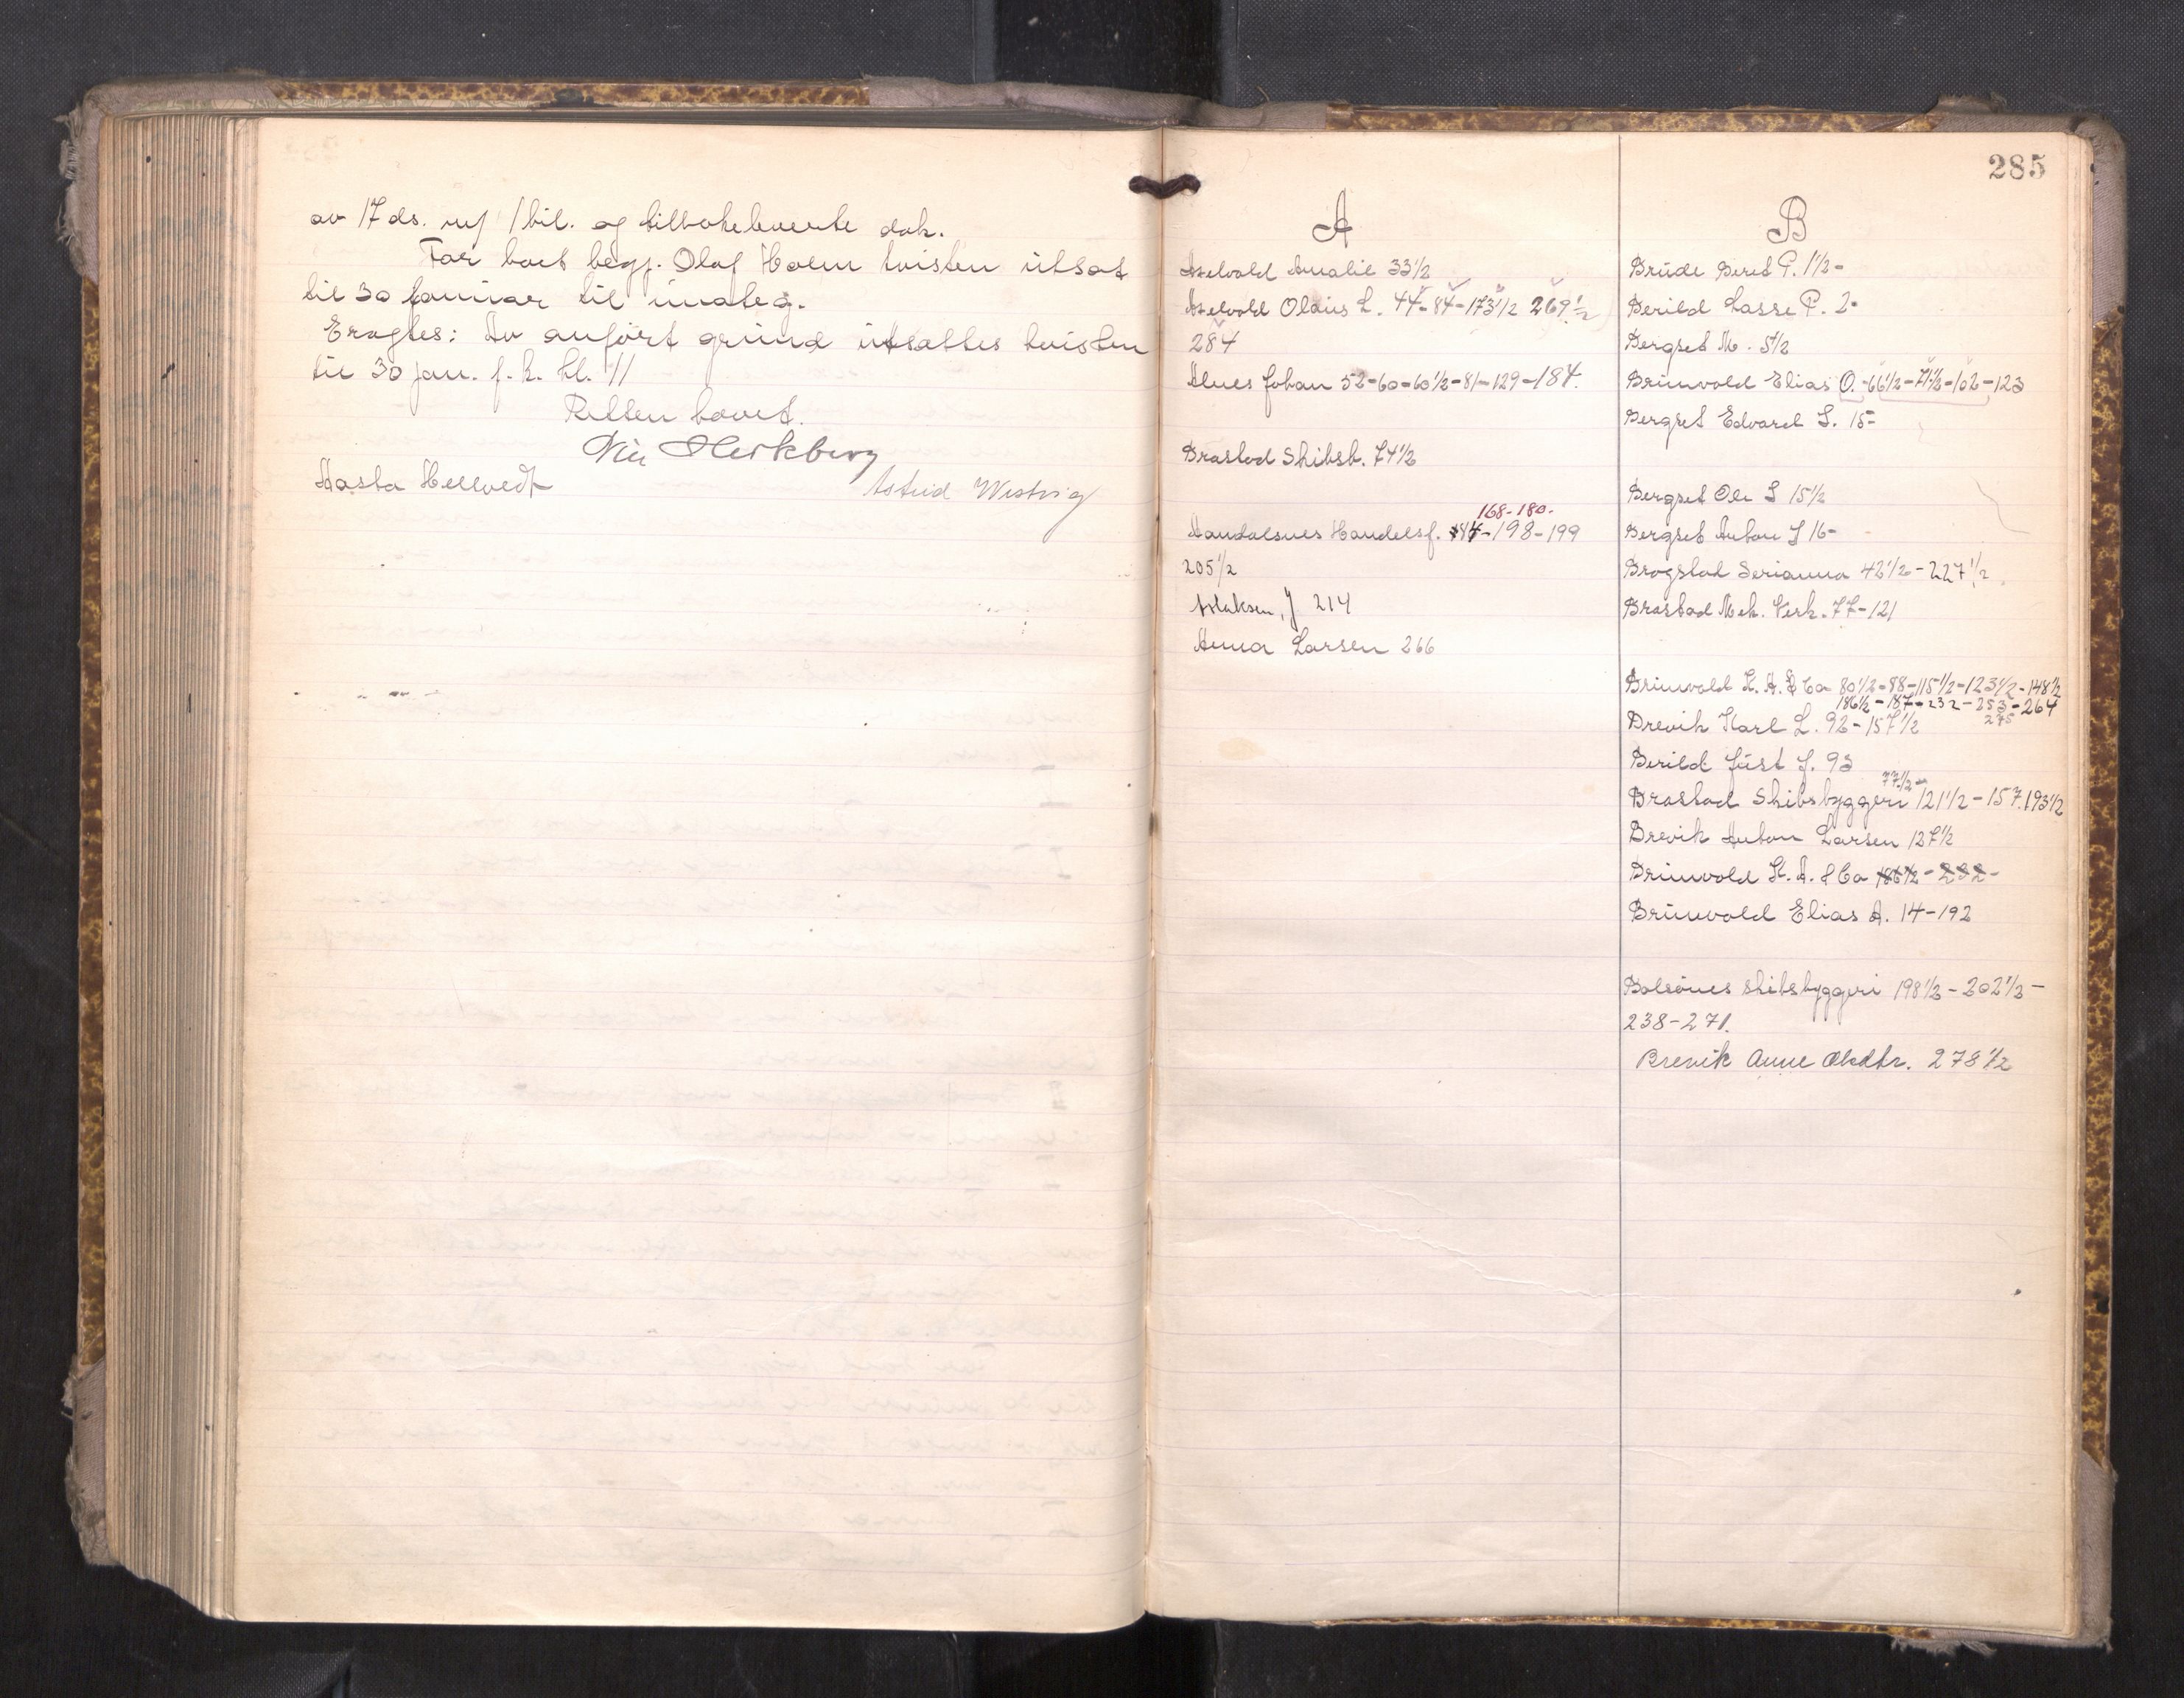 av 17 ds. m/ 1 bil. og tilbakeleverte dok.
For boet begj. Olaf Holm tvisten utsat
til 30 januar til imøteg.
Eragtes: Av anført grund utsættes tvisten
til 30 jan. f. k. kl. 11
Retten hævet.
Aasta Hellvedt
Astrid Westvig
285
A
Aselvold Amalie 33½
Aselvold Olaus L. 44-84-173½ 269½
284
Alnes Johan 52-60-60½-81-129-184.
Brastad Skibsb. 74½
168-180-
Aandalsnes Handelsf. 184-198-199
205½
Aslaksen, J 214
Anna Larsen 266
B
Brude Beret P. 1½-
Berild Lasse P. 2-
Bergset M. 5½
Brunvold Elias O.-66½-71½-102-123
Bergset Edvard L. 15-
Bergset Ole L 15½
Bergset Anton L 16-
Brogstad Serianna 42½-227½
Brastad Mek. Verk. 77-121
Brunvold K. A. & Co 80½-88-115½-123½-148½
186½-187-232-253-264
275
Brevik Karl L. 92-157½
Berild Just J. 93
77½-
Brastad Skibsbyggeri 121½-157.193½
Brevik Anton Larsen 127½
Brunvold K. A. & Co 186½-232-
Brunvold Elias A. 14-192
Bolsønes Skibsbyggeri 198½-202½-
238-271.
Brevik Anne Olsdtr. 278½